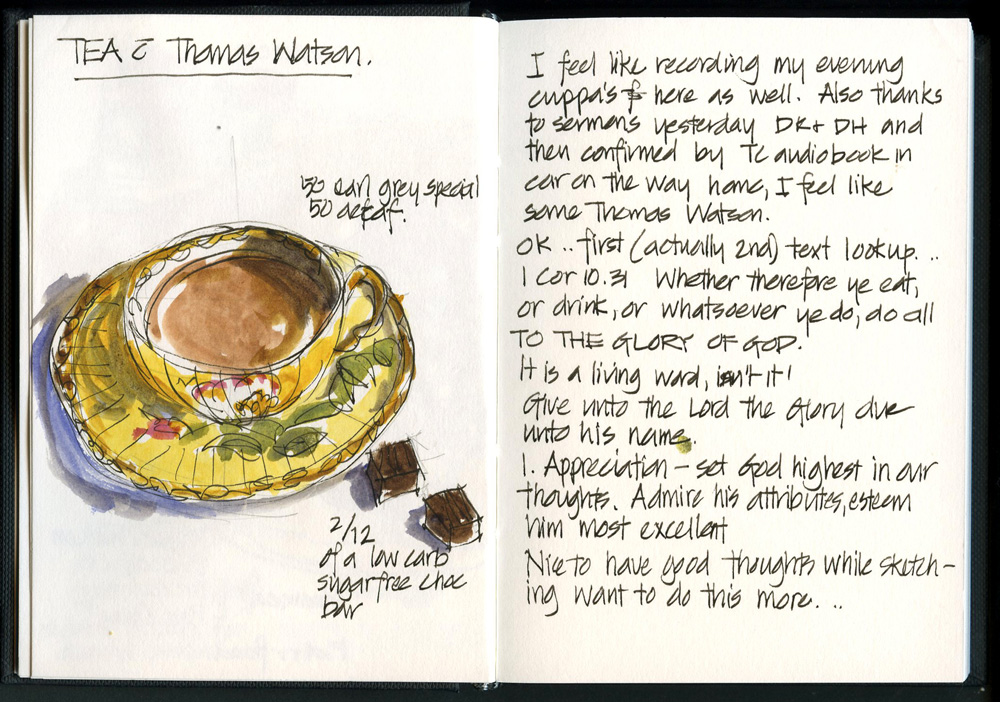 TEA c̄ Thomas Watson.
50 earl grey special
50 decaf.
2/12
of a low carb
sugarfree choc
bar
I feel like recording my evening
cuppa's here as well. Also thanks
to sermons yesterday DR + DH and
then confirmed by TC audiobook in
car on the way home, I feel like
some Thomas Watson.
OK .. first (actually 2nd) text lookup. ..
1 Cor 10.31 Whether therefore ye eat,
or drink, or whatsoever ye do, do all
TO THE GLORY OF GOD.
It is a living word, isn't it!
Give unto the Lord the Glory due
unto his name.
1. Appreciation - set God highest in our
thoughts. Admire his attributes, esteem
him most excellent
Nice to have good thoughts while sketch-
ing want to do this more. ..